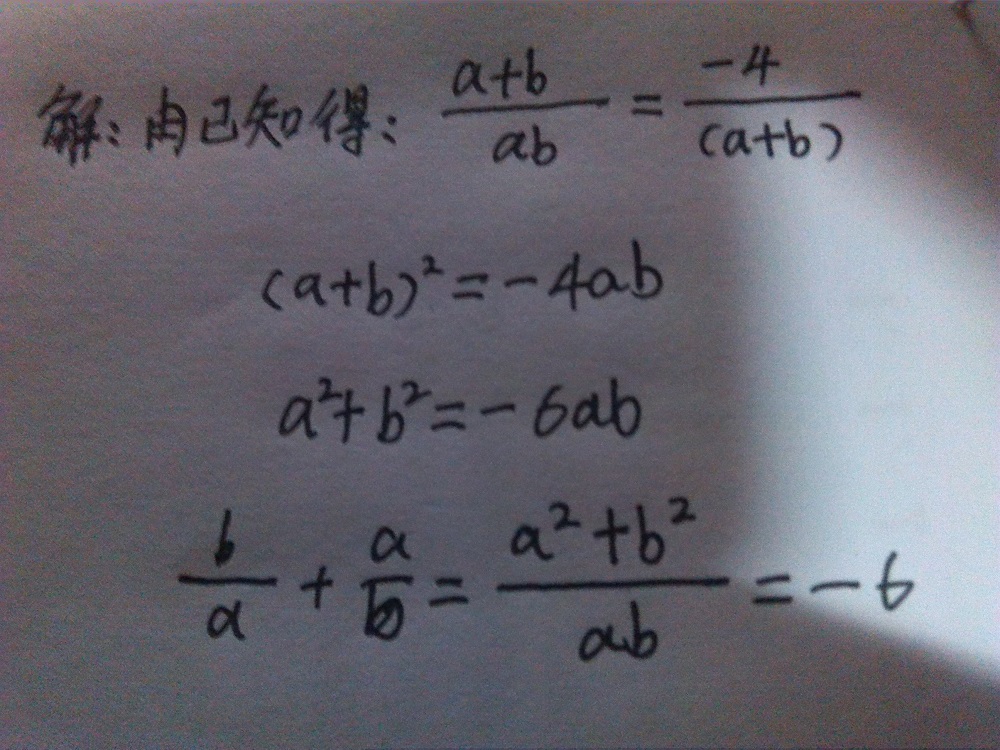 解：由已知得：(a+b)/(ab) = -4/((a+b))
(a+b)² = -4ab
a²+b² = -6ab
b/a + a/b = (a²+b²)/(ab) = -6